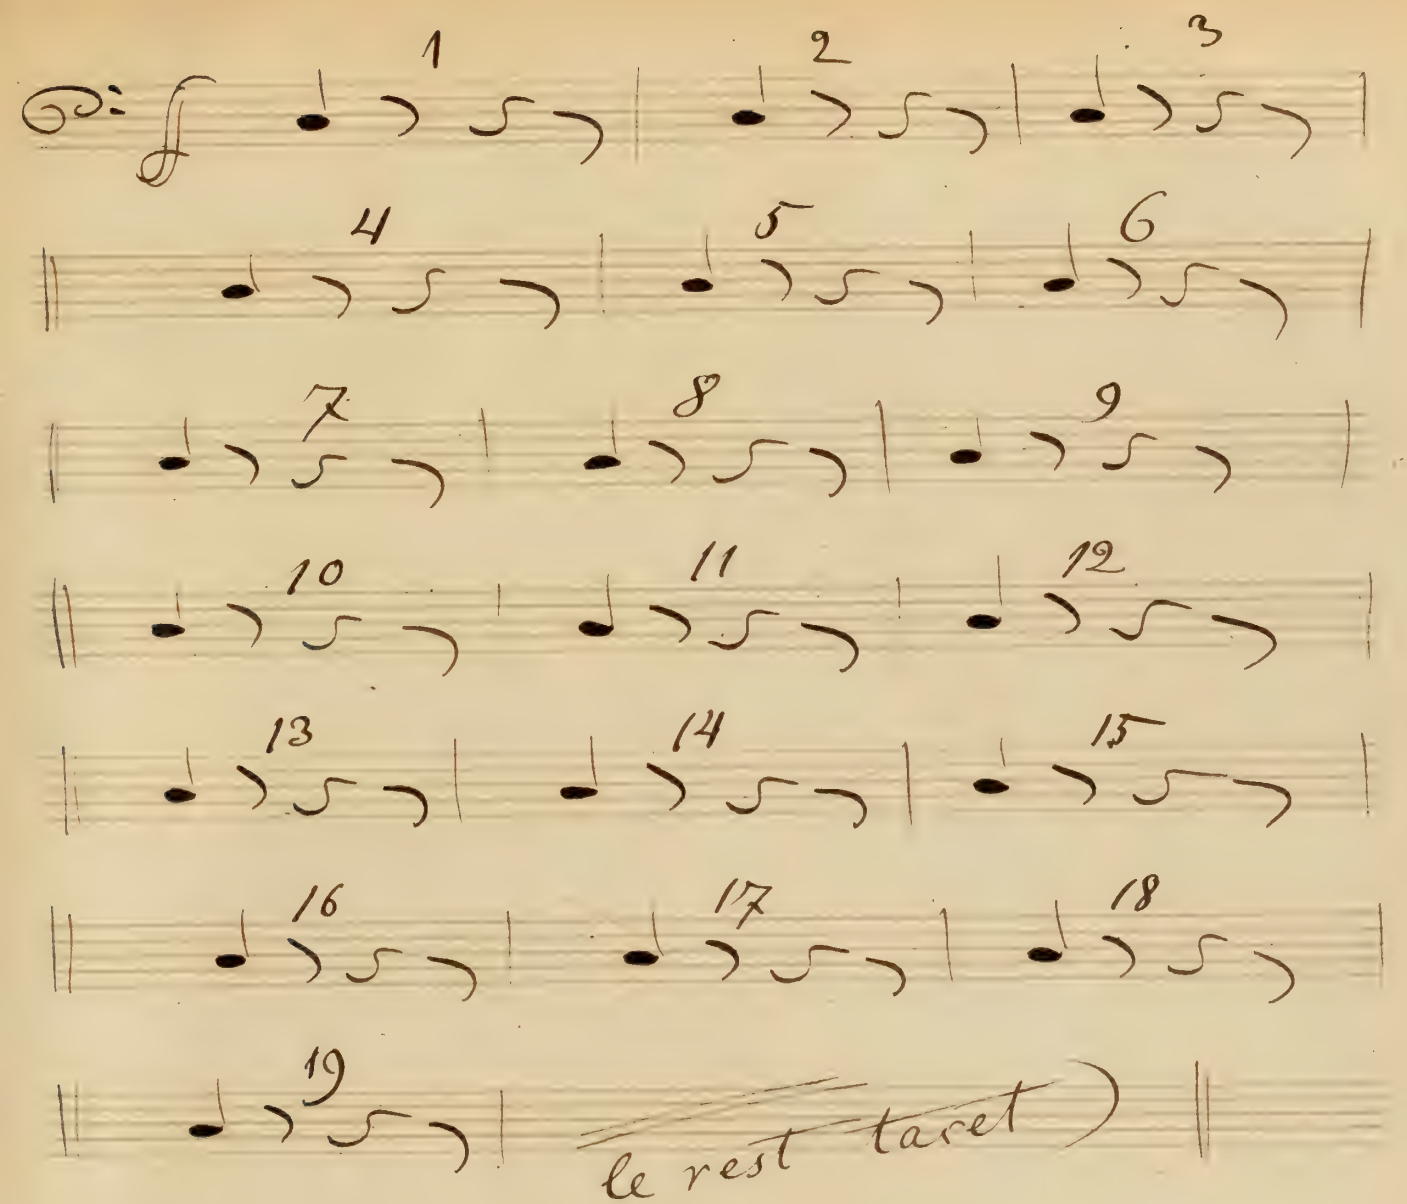 1 2 3
4 5 6
7 8 9
10 11 12
13 14 15
16 17 18
19
le rest tacet